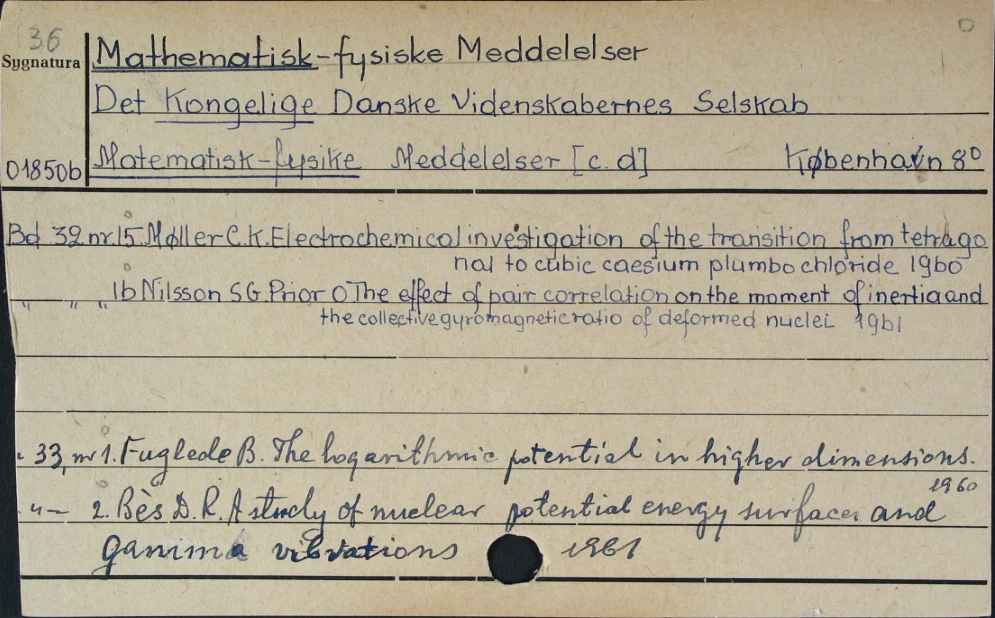 36
D
Sygnatura
Mathematisk-fysiske Meddelelser
Det Kongelige Danske Videnskabernes Selskab
01850b Matematisk-fysike Meddelelser [c.d] København 8°
Bd 32 nr. 15. Møller C.K. Electrochemical investigation of the transition from tetrago
nal to cubic caesium plumbo chloride 1960
" " " 16 Nilsson S G. Prior O The effect of pair correlation on the moment of inertia and
the collective gyromagnetic ratio of deformed nuclei 1961
" 33, nr 1. Fuglede B. The logarithmic potential in higher dimensions.
1960
" — 2. Bès D. R. A study of nuclear potential energy surfaces and
gamma vibrations 1961